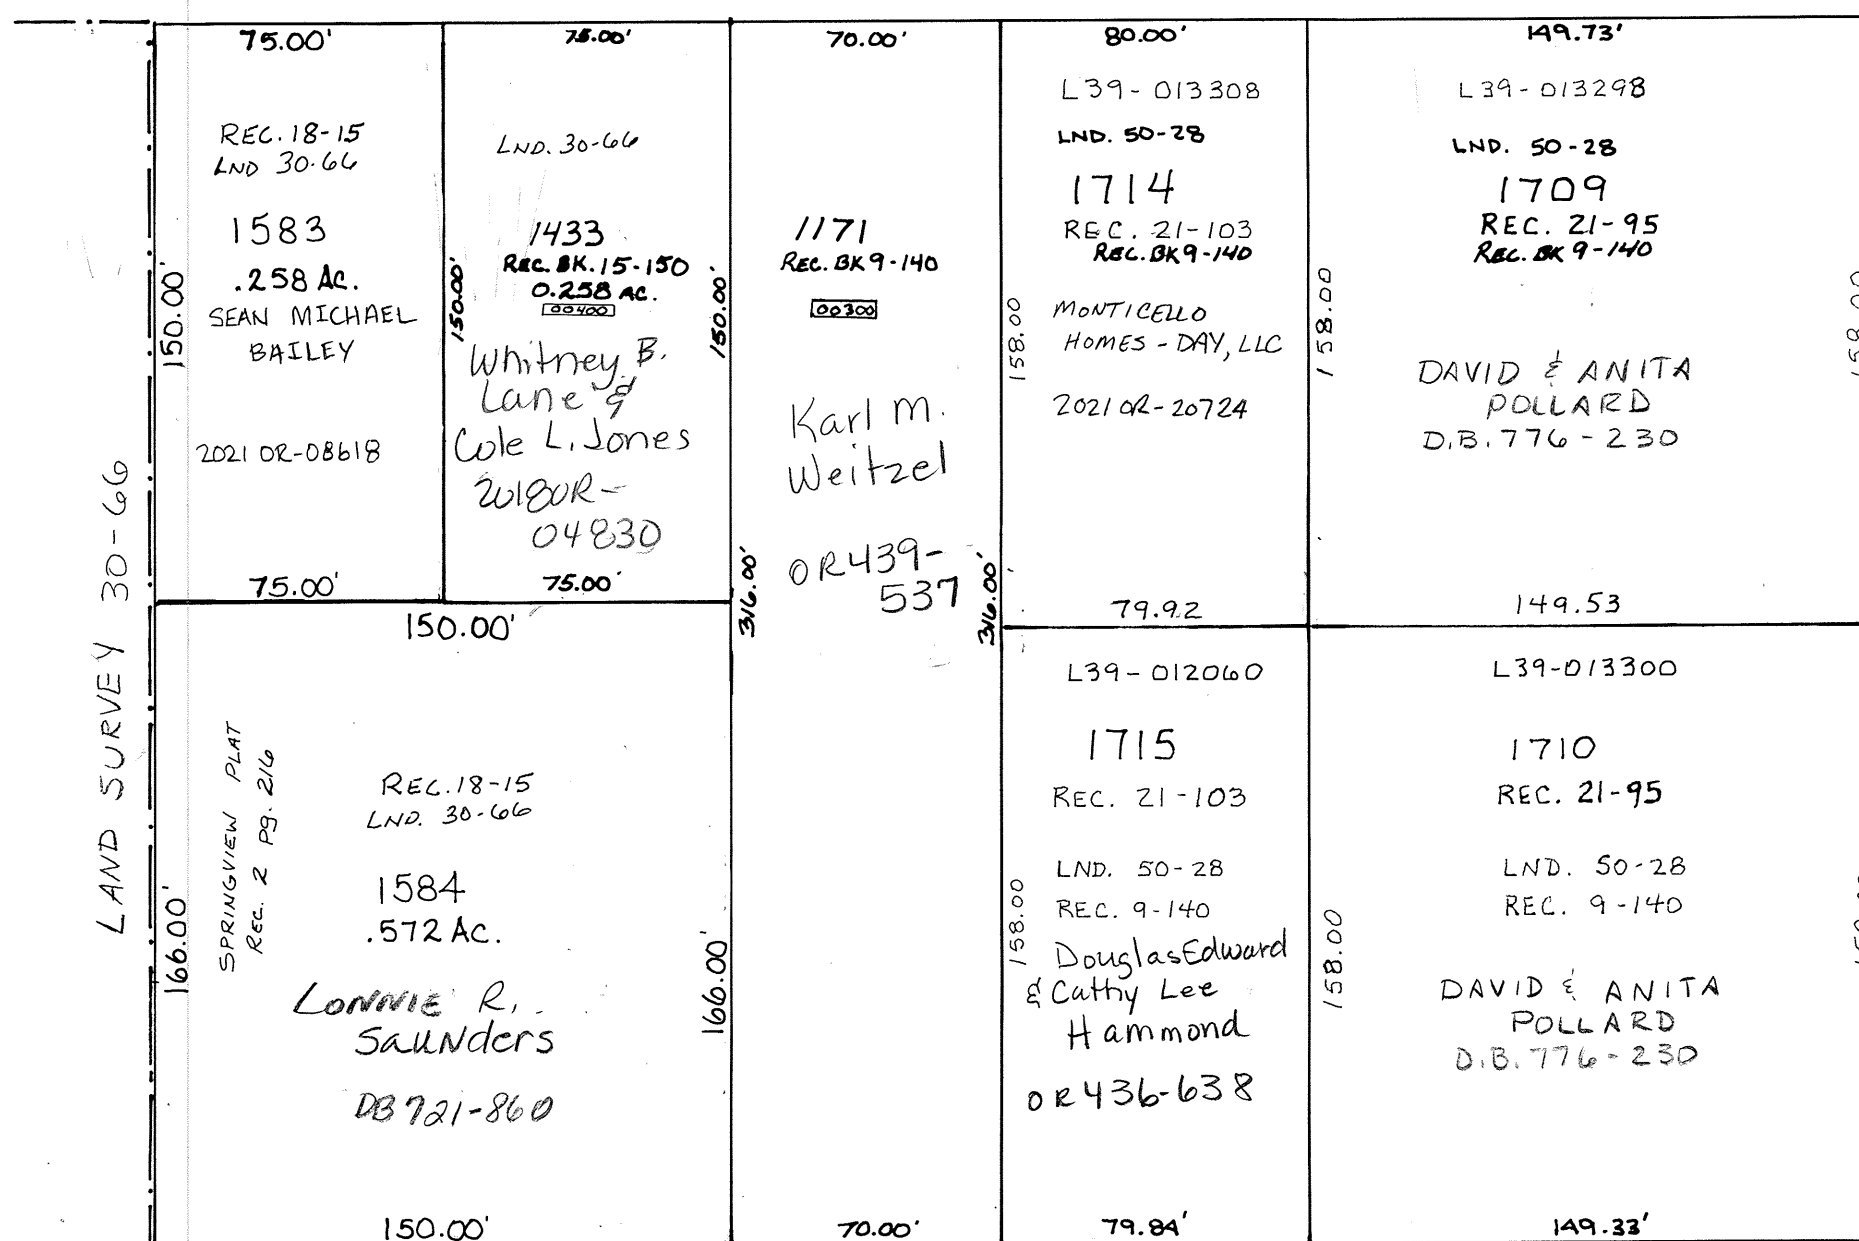 LAND SURVEY 30-66
75.00'
REC. 18-15
LND 30-66
1583
.258 AC.
SEAN MICHAEL
BAILEY
150.00'
2021 OR-08618
75.00'
75.00'
LND. 30-66
1433
REC. BK. 15-150
0.258 AC.
00400
150.00'
150.00'
Whitney B.
Lane &
Cole L. Jones
2018OR-
04830
75.00'
70.00'
1171
REC. BK 9-140
00300
Karl M.
Weitzel
OR439-
537
316.00'
316.00'
70.00'
80.00'
L39-013308
LND. 50-28
1714
REC. 21-103
REC. BK 9-140
MONTICELLO
HOMES - DAY, LLC
158.00
2021 OR-20724
79.92
149.73'
L39-013298
LND. 50-28
1709
REC. 21-95
REC. BK 9-140
158.00
158.00
DAVID & ANITA
POLLARD
D.B. 776-230
149.53
150.00'
SPRINGVIEW PLAT
REC. 2 Pg. 216
REC. 18-15
LND. 30-66
1584
.572 AC.
166.00'
166.00'
LONNIE R.
Saunders
DB 721-860
150.00'
L39-012060
1715
REC. 21-103
LND. 50-28
REC. 9-140
158.00
Douglas Edward
& Cathy Lee
Hammond
OR 436-638
79.84'
L39-013300
1710
REC. 21-95
LND. 50-28
REC. 9-140
158.00
DAVID & ANITA
POLLARD
D.B. 776-230
149.33'